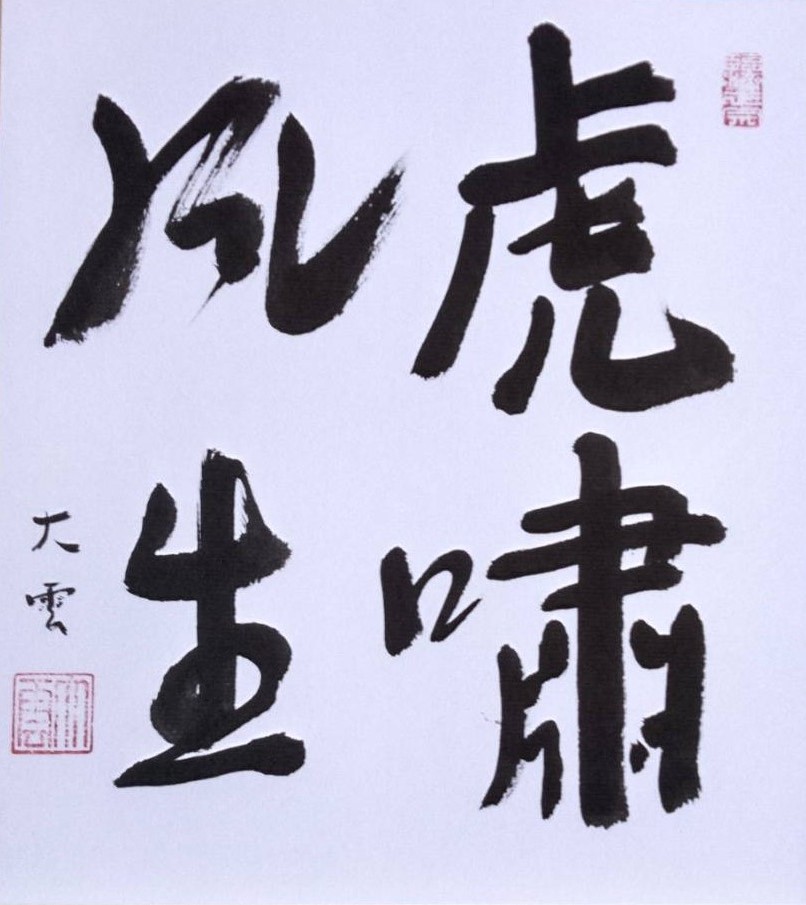 虎嘯
風生
大雲